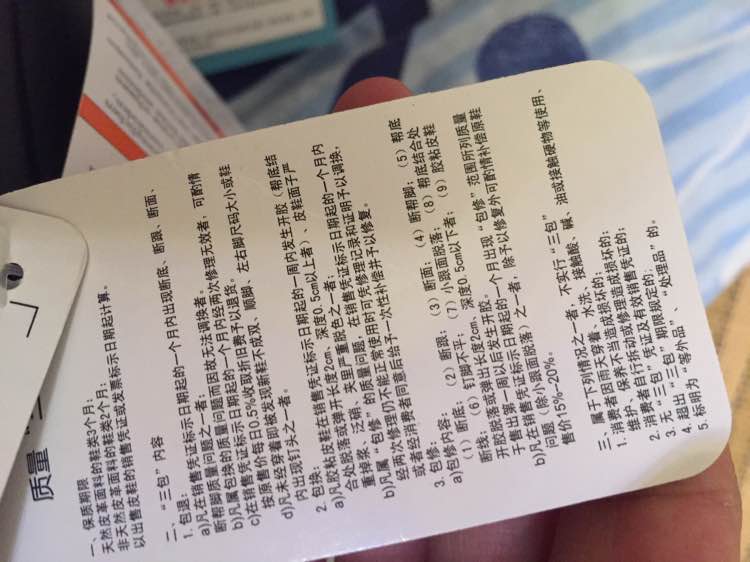 质量
一、保质期限
天然皮革面料的鞋类3个月；
非天然皮革面料的鞋类2个月；
以出售皮鞋的销售凭证或发票标示日期起计算。
二、“三包”内容
1. 包退：
a)凡在销售凭证标示日期起的一个月内出现断底、断跟、断面、
断帮脚质量问题之一者；
b)凡属包换的质量问题而因故无法调换者。
c)在销售凭证标示日期起的一个月内经两次修理无效者，可酌情
按原售价每日0.5%收取折旧费予以退货。
d)凡未经穿着即被发现新鞋不成双、顺脚、左右脚尺码大小或鞋
内出现钉头之一者。
2. 包换：
a)凡胶粘皮鞋在销售凭证标示日期起的一周内发生开胶（帮底结
合处脱落或弹开长度2cm，深度0.5cm以上者）、皮鞋面子严
重掉浆、泛硝、夹里严重脱色之一者；
b)凡属“包修”的质量问题，在销售凭证标示日期起的一个月内
经两次修理仍不能正常使用时可凭修理记录和证明予以调换，
或者经消费者同意后给予一次性补偿并予以修复。
3. 包修：
a)包修内容：
（1）断底； （2）断跟； （3）断面； （4）断帮脚； （5）帮底
断线； （6）钉脚不平； （7）小跟面脱落； （8）帮底结合处
开胶脱落或弹出长度2cm，深度0.5cm以下者； （9）胶粘皮鞋
于售出第一周以后发生开胶。
b)凡在销售凭证标示日期起的一个月出现“包修”范围所列质量
问题（除小跟面脱落）之一者，除予以修复外可酌情补偿原鞋
售价15%-20%。
三、属于下列情况之一者，不实行“三包”
1. 消费者因雨天穿着、水洗、接触酸、碱、油或接触硬物等使用、
维护、保养不当造成损坏的；
2. 消费者自行拆动或修理造成损坏的；
3. 无“三包”凭证及有效销售凭证的；
4. 超出“三包”期限规定的；
5. 标明为“等外品”、“处理品”的。